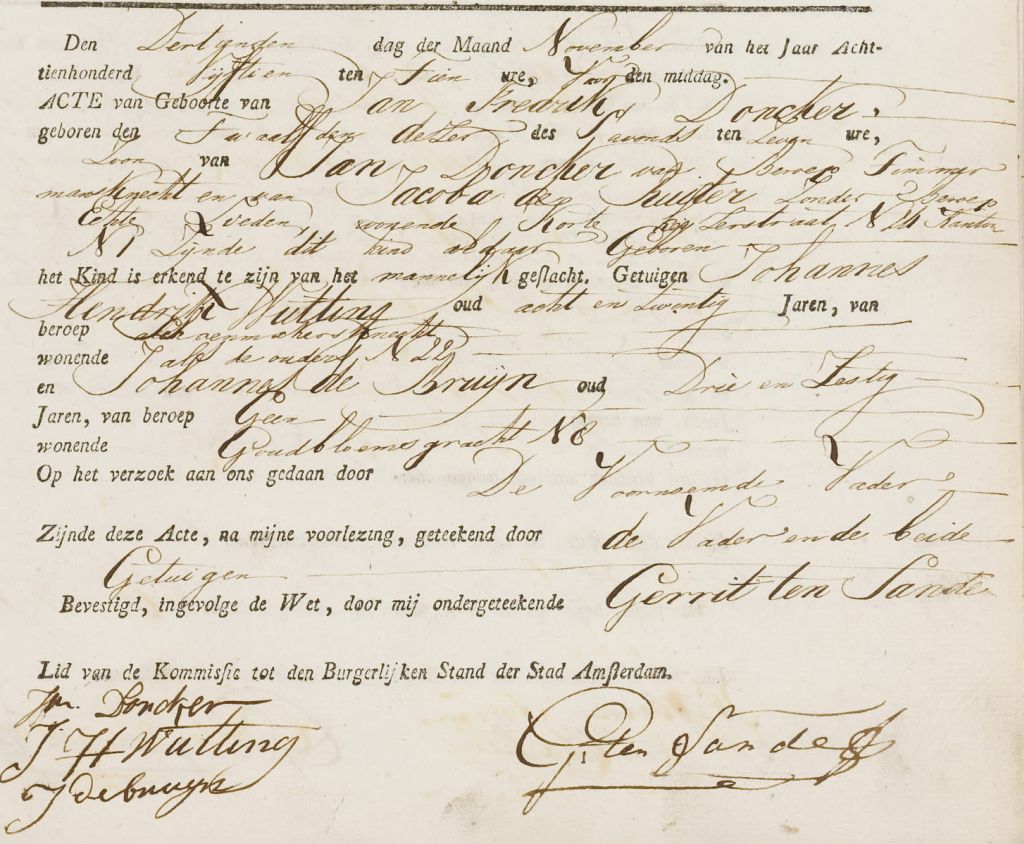 Den Dertynden dag der Maand November van het Jaar Acht-
tienhonderd Vyftien ten Tien ure, Voor den middag.
ACTE van Geboorte van Jan Fredrik Doncker
geboren den Twaalfden dezer des avonds ten Zeven ure,
Zoon van Jan Doncker van Beroep Timmer
mansknecht en van Jacoba de Ruiter Zonder Beroep
Echte Lieden, wonende Korte straat N 24 Kanton
N 1 Zynde dit kind aldaar Geboren
het Kind is erkend te zijn van het mannelyk geslacht. Getuigen Johannes
Hendrik Wutting oud acht en twentig Jaren, van
beroep Schoenmakersknecht
wonende als de ouders N 22
en Johannes de Bruijn oud Drie en Zestig
Jaren, van beroep Geen
wonende Goudbloems gracht N 8
Op het verzoek aan ons gedaan door De Voornoemde Vader
Zijnde deze Acte, na mijne voorlezing, geteekend door de Vader en de beide
Getuigen
Bevestigd, ingevolge de Wet, door mij ondergeteekende Gerrit ten Sande
Lid van de Kommissie tot den Burgerlijken Stand der Stad Amsterdam.
Jn. Doncker
J H Wutting
J de bruyn
G. ten Sande